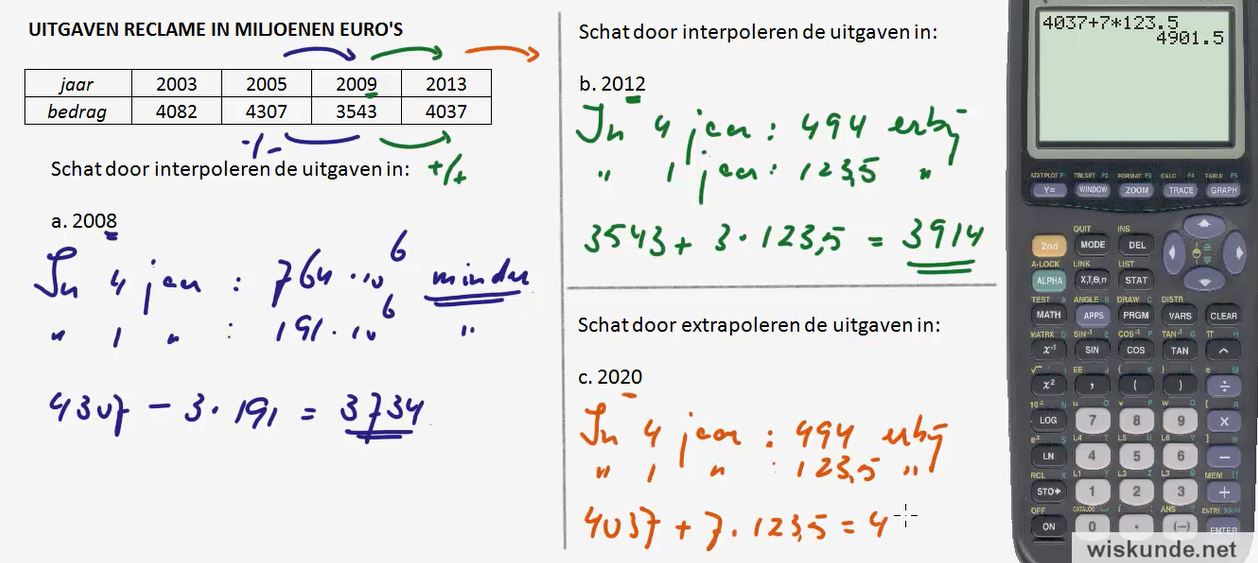 UITGAVEN RECLAME IN MILJOENEN EURO'S
jaar 2003 2005 2009 2013
bedrag 4082 4307 3543 4037
-/- +/+
Schat door interpoleren de uitgaven in:
a. 2008
In 4 jaar : 764 · 10^6 minder
" 1 " : 191 · 10^6 "
4307 - 3 · 191 = 3734
Schat door interpoleren de uitgaven in:
b. 2012
In 4 jaar : 494 erbij
" 1 jaar : 123,5 "
3543 + 3 · 123,5 = 3914
Schat door extrapoleren de uitgaven in:
c. 2020
In 4 jaar : 494 erbij
" 1 " : 123,5 "
4037 + 7 · 123,5 = 4
4037+7*123.5
4901.5
STAT PLOT F1 TBLSET F2 FORMAT F3 CALC F4 TABLE F5
Y= WINDOW ZOOM TRACE GRAPH
QUIT INS
2nd MODE DEL
A-LOCK LINK LIST
ALPHA X,T,θ,n STAT
TEST A ANGLE B DRAW C DISTR
MATH APPS PRGM VARS CLEAR
MATRX D SIN⁻¹ E COS⁻¹ F TAN⁻¹ G π H
x⁻¹ SIN COS TAN ^
√ I EE J { K } L e M
x² , ( ) ÷
10ˣ N u O v P w Q [ R
LOG 7 8 9 ×
eˣ S L4 T L5 U L6 V ] W
LN 4 5 6 −
RCL X L1 Y L2 Z L3 θ MEM "
STO▸ 1 2 3 +
OFF CATALOG i ANS ? ENTRY SOLVE
ON 0 . (−) ENTER
wiskunde.net